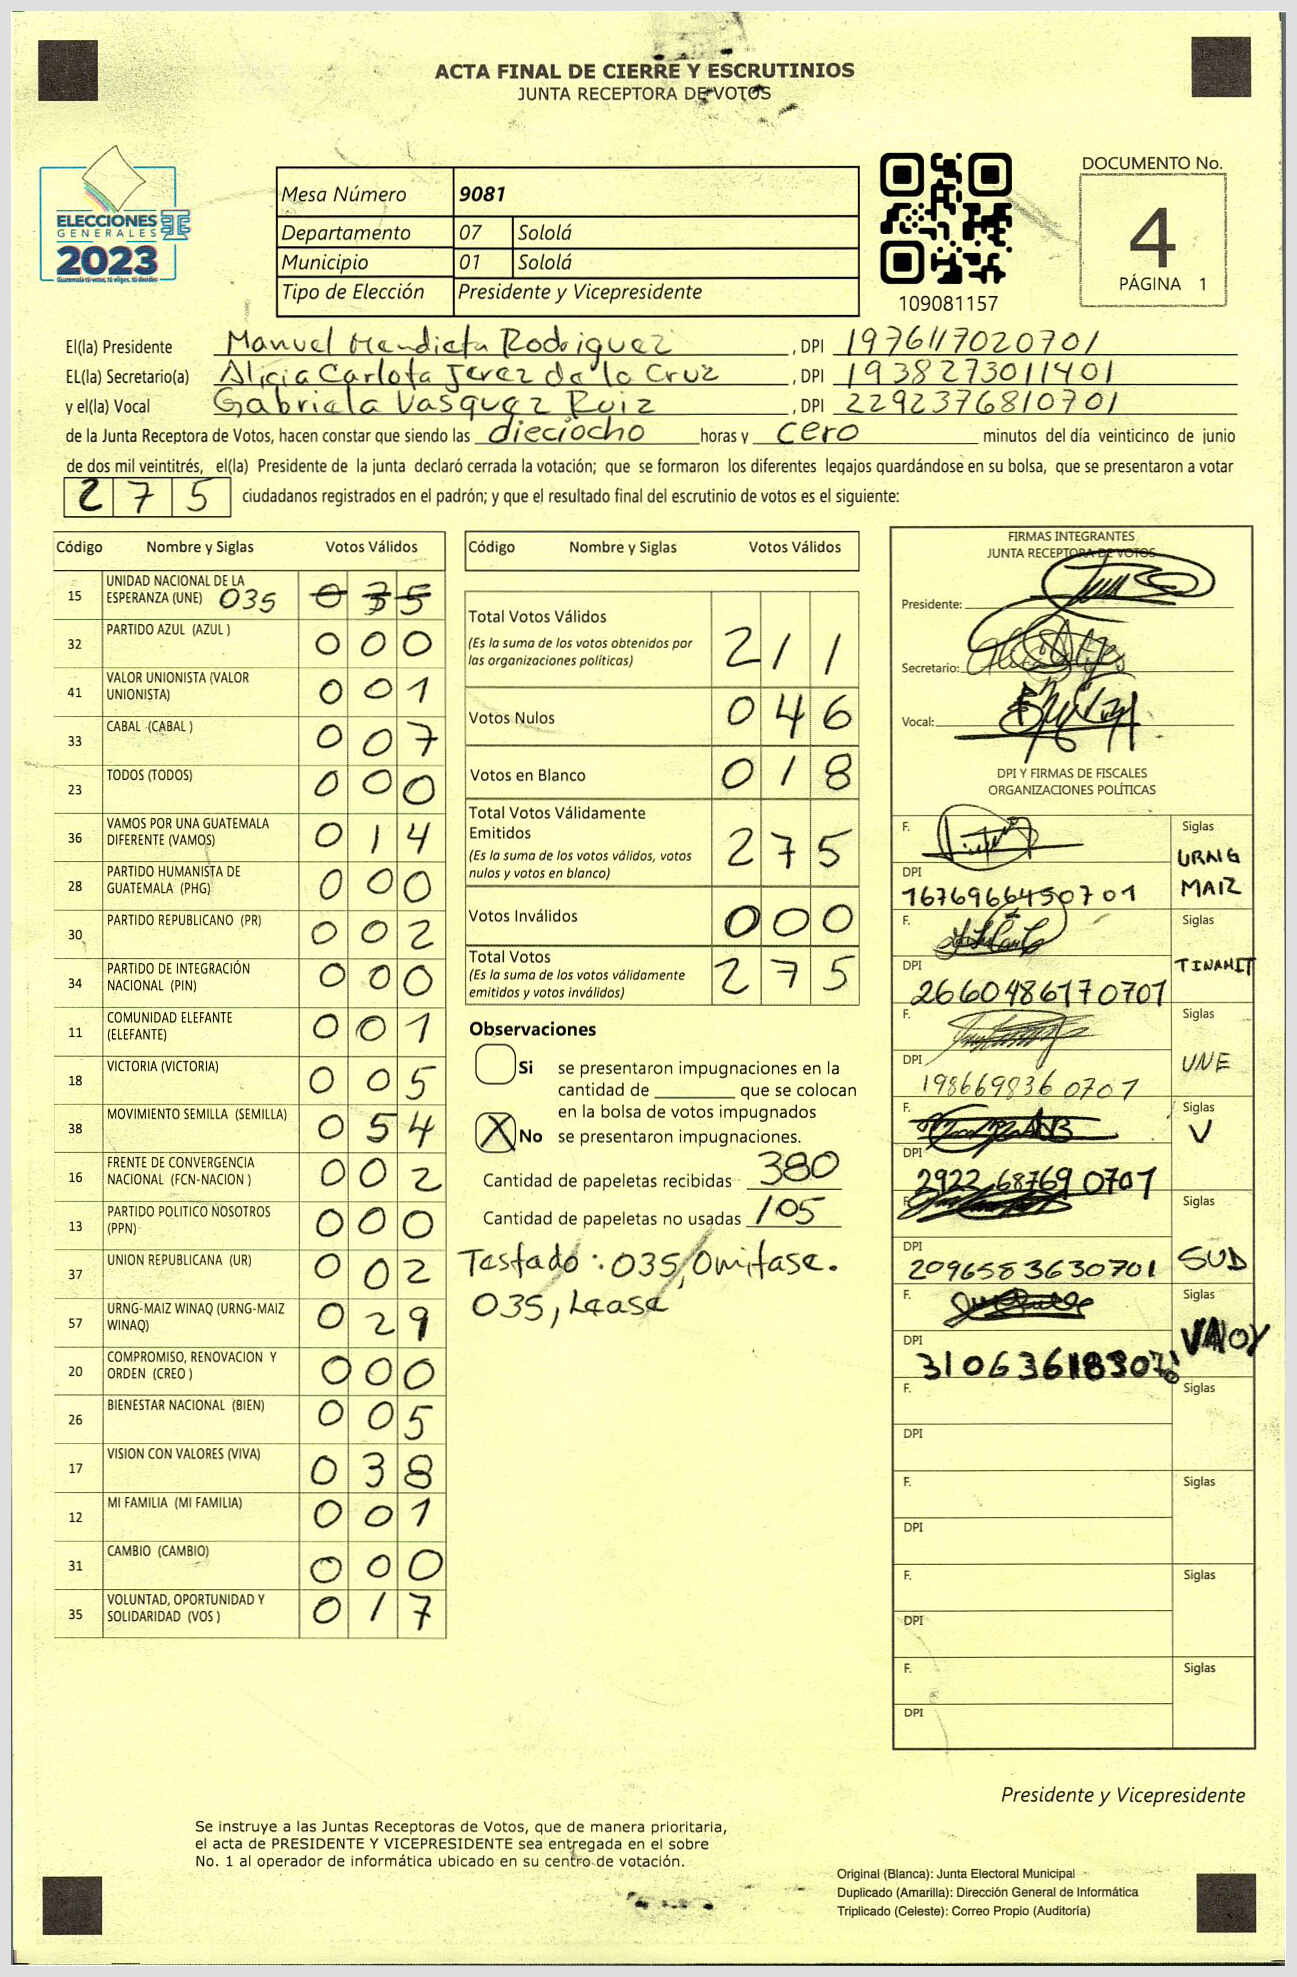 ACTA FINAL DE CIERRE Y ESCRUTINIOS
JUNTA RECEPTORA DE VOTOS
ELECCIONES
GENERALES
2023
Mesa Número 9081
Departamento 07 Sololá
Municipio 01 Sololá
Tipo de Elección Presidente y Vicepresidente
109081157
DOCUMENTO No.
4
PÁGINA 1
El(la) Presidente Manuel Mendieta Rodriguez , DPI 1976117020701
EL(la) Secretario(a) Alicia Carlota Jerez de la Cruz , DPI 1938273011401
y el(la) Vocal Gabriela Vasquez Ruiz , DPI 2292376810701
de la Junta Receptora de Votos, hacen constar que siendo las dieciocho horas y cero minutos del día veinticinco de junio
de dos mil veintitrés, el(la) Presidente de la junta declaró cerrada la votación; que se formaron los diferentes legajos guardándose en su bolsa, que se presentaron a votar
275 ciudadanos registrados en el padrón; y que el resultado final del escrutinio de votos es el siguiente:
Código Nombre y Siglas Votos Válidos
15 UNIDAD NACIONAL DE LA
ESPERANZA (UNE) 035 035
32 PARTIDO AZUL (AZUL ) 000
41 VALOR UNIONISTA (VALOR
UNIONISTA) 001
33 CABAL (CABAL ) 007
23 TODOS (TODOS) 000
36 VAMOS POR UNA GUATEMALA
DIFERENTE (VAMOS) 014
28 PARTIDO HUMANISTA DE
GUATEMALA (PHG) 000
30 PARTIDO REPUBLICANO (PR) 002
34 PARTIDO DE INTEGRACIÓN
NACIONAL (PIN) 000
11 COMUNIDAD ELEFANTE
(ELEFANTE) 001
18 VICTORIA (VICTORIA) 005
38 MOVIMIENTO SEMILLA (SEMILLA) 054
16 FRENTE DE CONVERGENCIA
NACIONAL (FCN-NACION ) 002
13 PARTIDO POLITICO NOSOTROS
(PPN) 000
37 UNION REPUBLICANA (UR) 002
57 URNG-MAIZ WINAQ (URNG-MAIZ
WINAQ) 029
20 COMPROMISO, RENOVACION Y
ORDEN (CREO ) 000
26 BIENESTAR NACIONAL (BIEN) 005
17 VISION CON VALORES (VIVA) 038
12 MI FAMILIA (MI FAMILIA) 001
31 CAMBIO (CAMBIO) 000
35 VOLUNTAD, OPORTUNIDAD Y
SOLIDARIDAD (VOS ) 017
Código Nombre y Siglas Votos Válidos
Total Votos Válidos
(Es la suma de los votos obtenidos por
las organizaciones políticas) 211
Votos Nulos 046
Votos en Blanco 018
Total Votos Válidamente
Emitidos
(Es la suma de los votos válidos, votos
nulos y votos en blanco) 275
Votos Inválidos 000
Total Votos
(Es la suma de los votos válidamente
emitidos y votos inválidos) 275
Observaciones
Si se presentaron impugnaciones en la
cantidad de ________ que se colocan
en la bolsa de votos impugnados
X No se presentaron impugnaciones.
Cantidad de papeletas recibidas 380
Cantidad de papeletas no usadas 105
Testado: 035, Omitase.
035, Lease
FIRMAS INTEGRANTES
JUNTA RECEPTORA DE VOTOS
Presidente:
Secretario:
Vocal:
DPI Y FIRMAS DE FISCALES
ORGANIZACIONES POLÍTICAS
F. Siglas
URNG
MAIZ
DPI
1676966450701
F. Siglas
TINAMIT
DPI
2660486170701
F. Siglas
UNE
DPI
1986698360701
F. Siglas
V
DPI
2922687690701
F. Siglas
SUD
DPI
2096583630701
F. Siglas
DPI
F. Siglas
DPI
F. Siglas
DPI
F. Siglas
DPI
F. Siglas
DPI
Presidente y Vicepresidente
Se instruye a las Juntas Receptoras de Votos, que de manera prioritaria,
el acta de PRESIDENTE Y VICEPRESIDENTE sea entregada en el sobre
No. 1 al operador de informática ubicado en su centro de votación.
Original (Blanca): Junta Electoral Municipal
Duplicado (Amarilla): Dirección General de Informática
Triplicado (Celeste): Correo Propio (Auditoría)